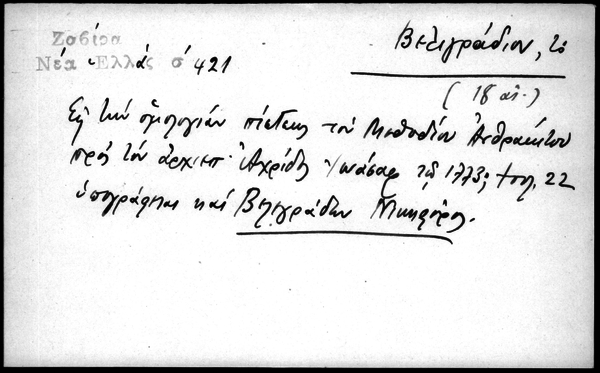 Ζαβίρα
Νέα Ἑλλὰς σ 421
Βελιγράδιον, τὸ
(18 αἰ.)
Εἰς τὴν ὁμολογίαν πίστεως τοῦ Μεθοδίου Ἀνθρακίτου
πρὸς τὸν ἀρχιεπ. Ἀχρίδος Ἰωάσαφ τῷ 1773; 22
ὑπογράφεται καὶ Βελιγράδων Νικηφόρος.